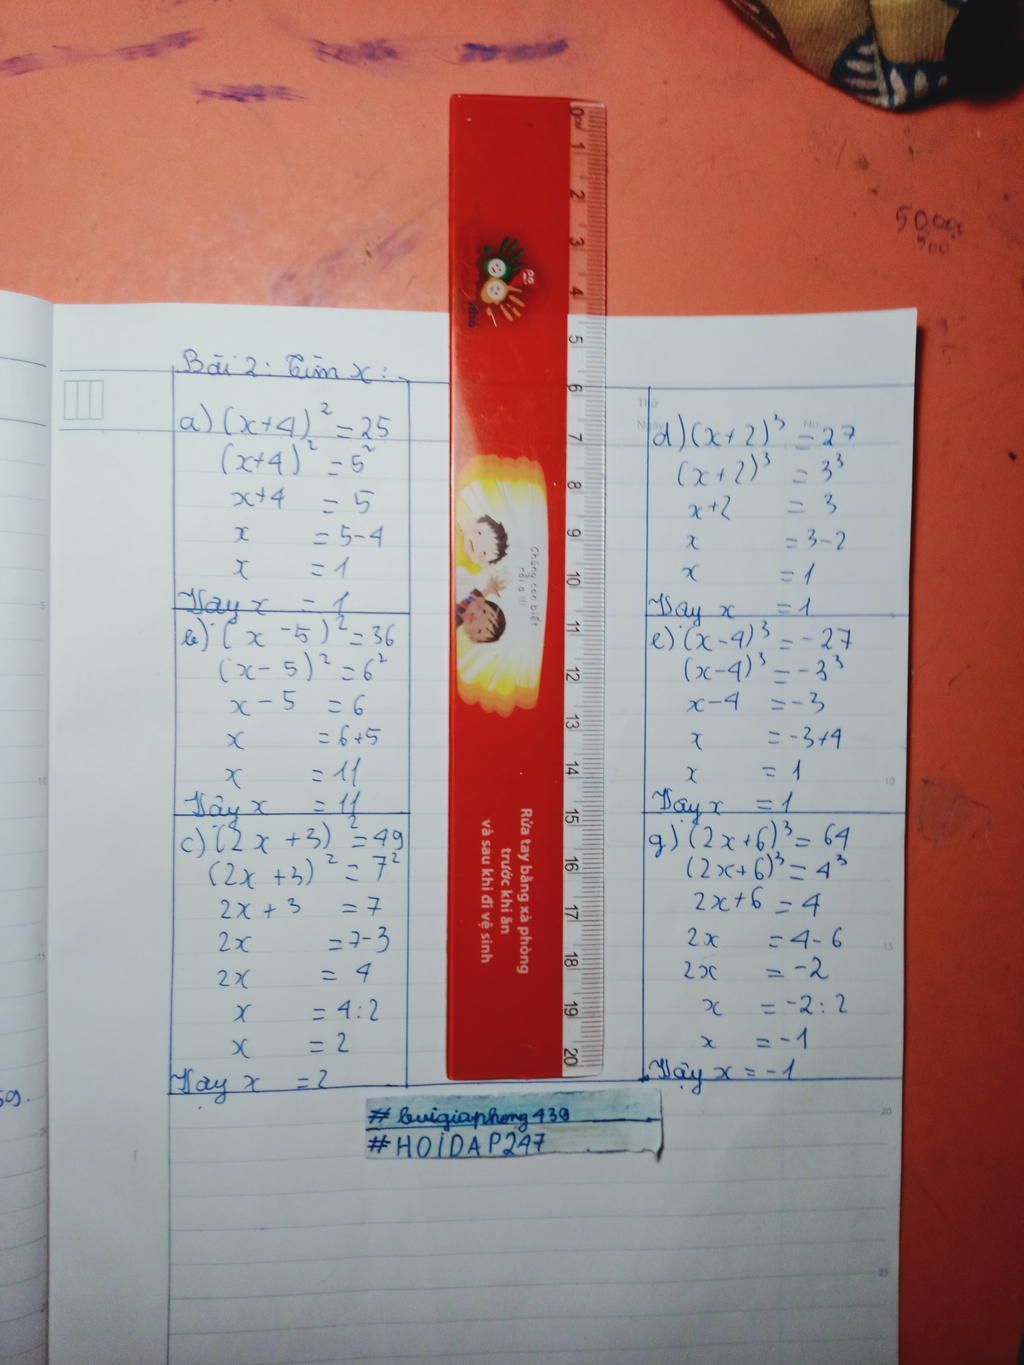 Bài 2: Tìm x:
a) (x+4)² = 25
(x+4)² = 5²
x+4 = 5
x = 5-4
x = 1
Vậy x = 1
b) (x-5)² = 36
(x-5)² = 6²
x-5 = 6
x = 6+5
x = 11
Vậy x = 11
c) (2x+3)² = 49
(2x+3)² = 7²
2x+3 = 7
2x = 7-3
2x = 4
x = 4:2
x = 2
Vậy x = 2
d) (x+2)³ = 27
(x+2)³ = 3³
x+2 = 3
x = 3-2
x = 1
Vậy x = 1
e) (x-4)³ = -27
(x-4)³ = -3³
x-4 = -3
x = -3+4
x = 1
Vậy x = 1
g) (2x+6)³ = 64
(2x+6)³ = 4³
2x+6 = 4
2x = 4-6
2x = -2
x = -2:2
x = -1
Vậy x = -1
0cm 1 2 3 4 5 6 7 8 9 10 11 12 13 14 15 16 17 18 19 20
Chúng con biết
rồi ạ !!!
Rửa tay bằng xà phòng
trước khi ăn
và sau khi đi vệ sinh
#buigiaphong439
#HOIDAP247
5
10
15
5
10
15
20
25